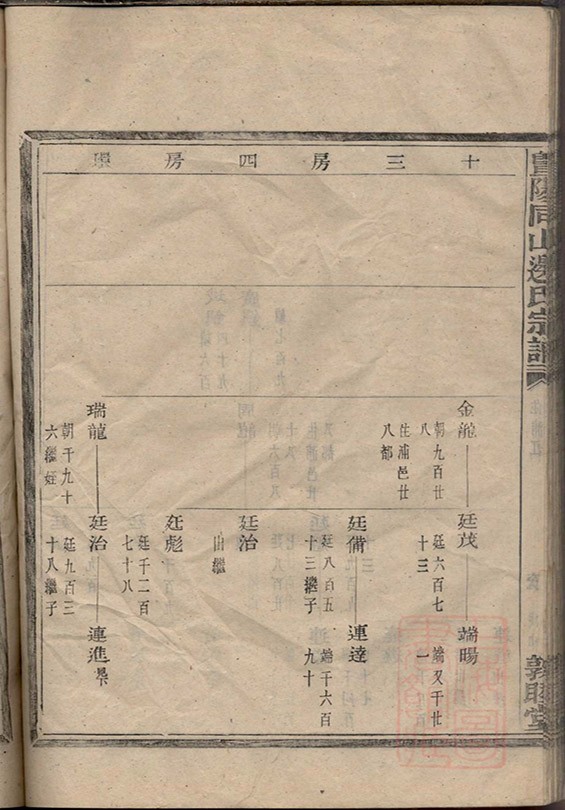 暨陽同山邊氏宗譜
敦睦堂
十三房四房
金龍
朝九百廿
八
住浦邑廿
八都
廷茂
廷六百七
十三
端暘
端又千廿
一
廷備
廷八百五
十三繼子
連達
端千六百
九十
廷治
出繼
廷彪
廷千二百
七十八
瑞龍
朝千九十
六繼姪
廷治
廷九百三
十八繼子
連進